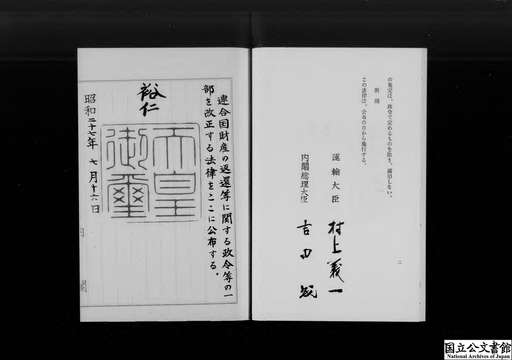 の規定は、政令で定めるものを除き、適用しない。
附則
この法律は、公布の日から施行する。
運輸大臣 村上義一
内閣総理大臣 吉田茂
二
連合国財産の返還等に関する政令等の一
部を改正する法律をここに公布する。
裕仁
天皇
御璽
昭和二十七年 七月十六日
国立公文書館
National Archives of Japan